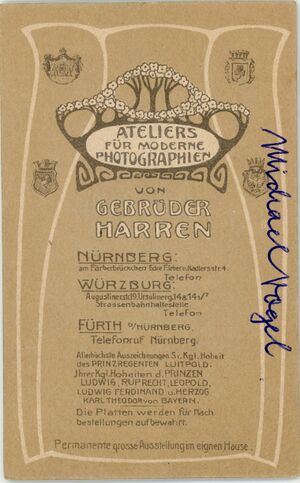 ATELIERS
FÜR MODERNE
PHOTOGRAPHIEN
VON
GEBRÜDER
HARREN
NÜRNBERG:
am Färberbrückchen Ecke Färber u. Adlerstr. 4.
Telefon
WÜRZBURG:
Augustinerstr. 19. Ursulinerg. 14a & 14 1/7
Strassenbahnhaltestelle.
Telefon
FÜRTH B/NÜRNBERG.
Telefonruf Nürnberg.
Allerhöchste Auszeichnungen Sr. Kgl. Hoheit
des PRINZREGENTEN LUITPOLD,
Ihrer Kgl. Hoheiten d. PRINZEN
LUDWIG, RUPRECHT, LEOPOLD,
LUDWIG FERDINAND u. HERZOG
KARL THEODOR von BAYERN.
Die Platten werden für Nach
bestellungen aufbewahrt.
Permanente grosse Ausstellung im eignen Hause.
Michael Vogel